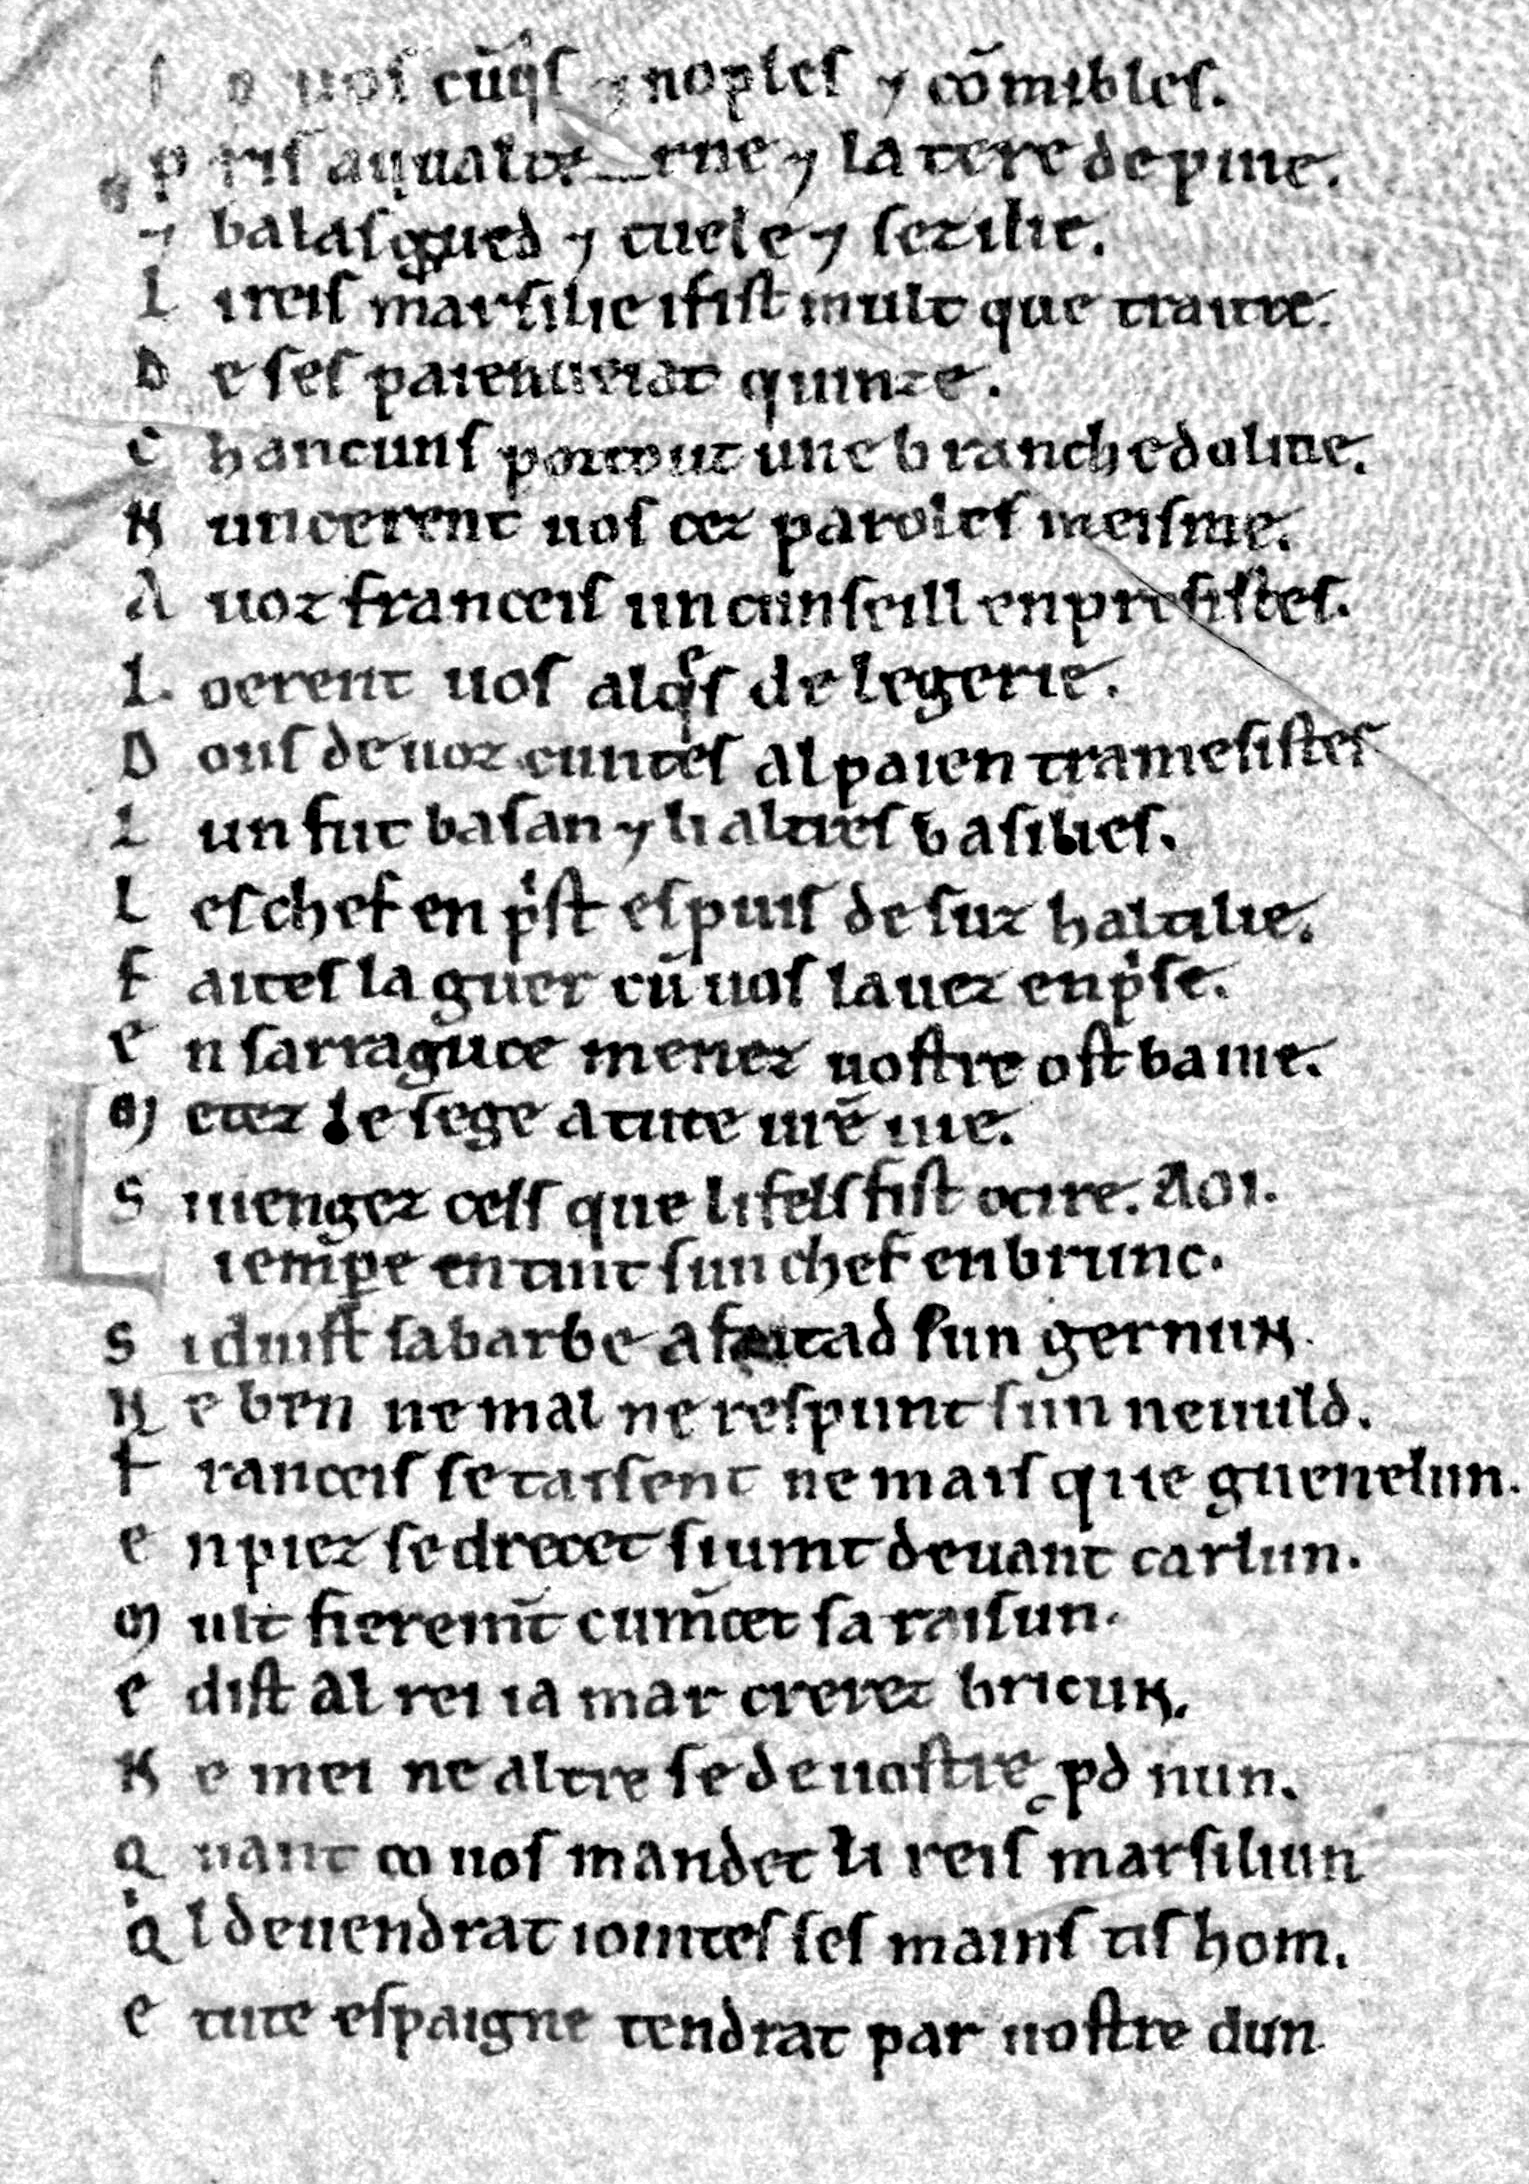 I o uos cũq̃s ⁊ noples ⁊ cõmibles.
P ris ai ualt̉ rne ⁊ la tere de pine.
⁊ balasgued ⁊ tuele ⁊ sezilie.
L i reis marsilie i fist mult que traitre.
D e ses paien ueiat quinze.
C hancuns portout une branche doliue.
N uncerent uos cez paroles meisme.
A uoz franceis un cunseill en presistes.
L oerent uos alq̃s de legerie.
D ous de uoz cuntes al paien tramesistes
L un fut basan ⁊ li altres basilies.
L es chef en pͥst es puis desuz haltilie.
F aites la guer cũ uos lauez enpͥse.
E n sarraguce menez uostre ost banie.
M etez le sege a tute ur̃e uie.
S i uengez cels que li fels fist ocire. AOI.
i emꝑe en tint sun chef enbrunc.
S i duist sa barbe afaitad sun gernun.
N e ben ne mal ne respunt sun neuuld.
F ranceis se taisent ne mais que guenelun.
E n piez se drecet si uint deuant carlun.
M ult fierem̃t cum̃cet sa raisun.
E dist al rei ia mar crerez bricun.
N e mei ne altre se de uostre ꝓd nun.
Q uant co uos mandet li reis marsiliun
Qͥ l deuendrat iointes ses mains tis hom.
E tute espaigne tendrat par uostre dun